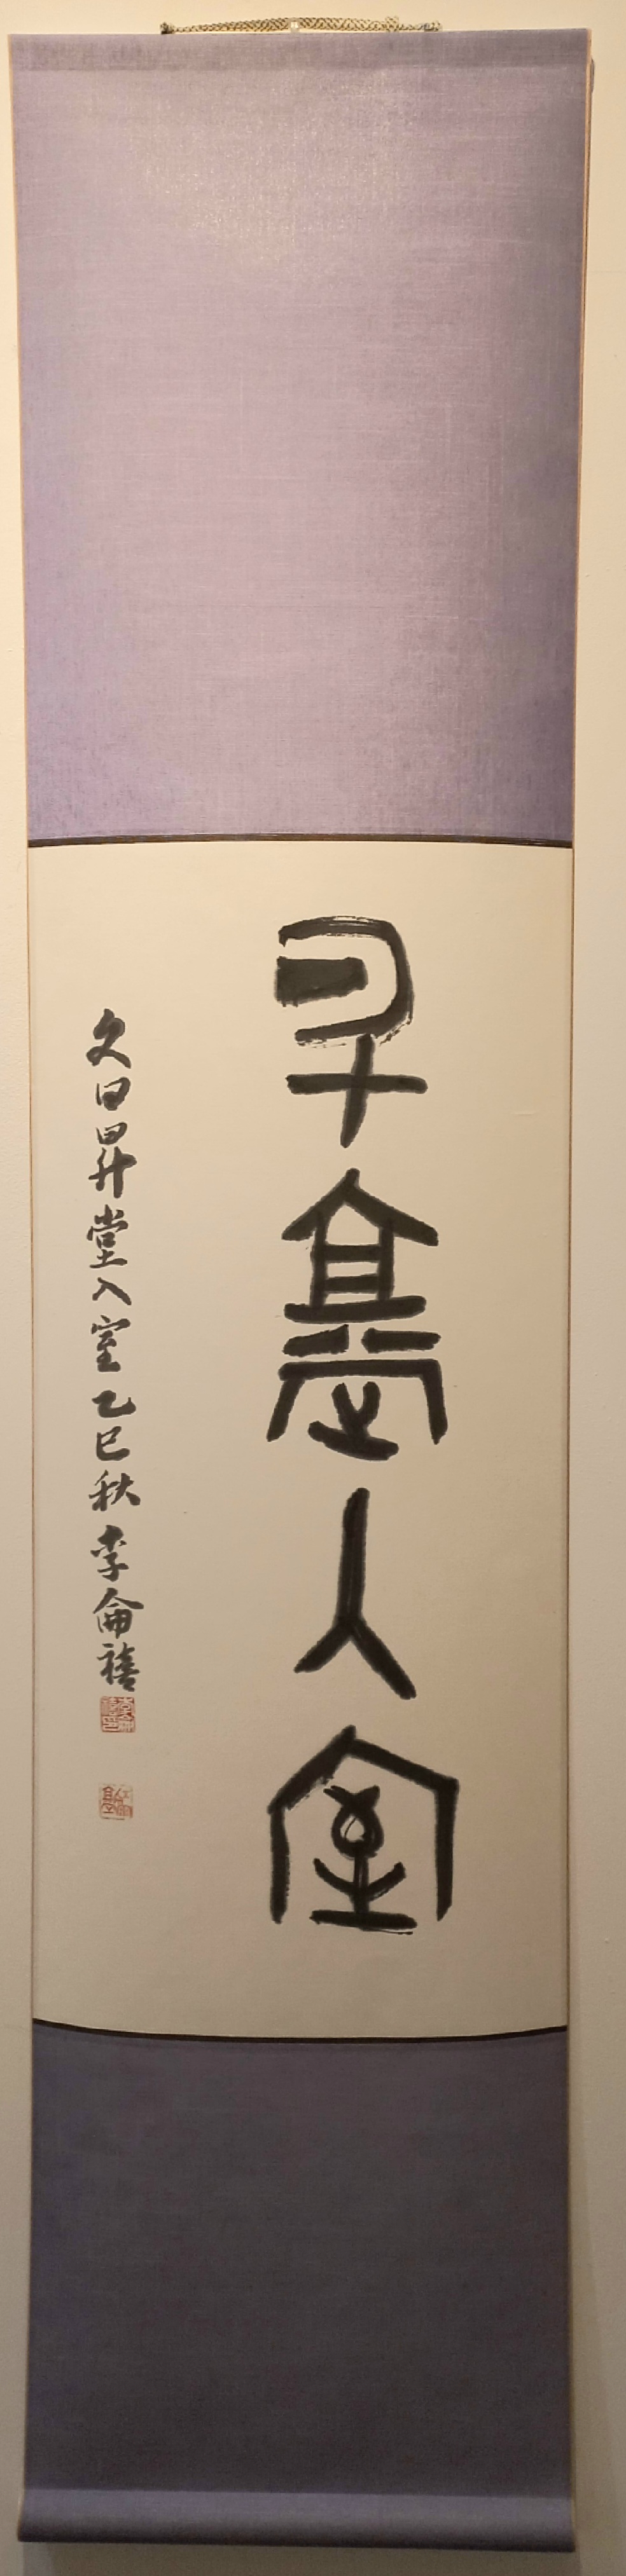 昇堂入室
文曰昇堂入室乙巳秋李侖禧